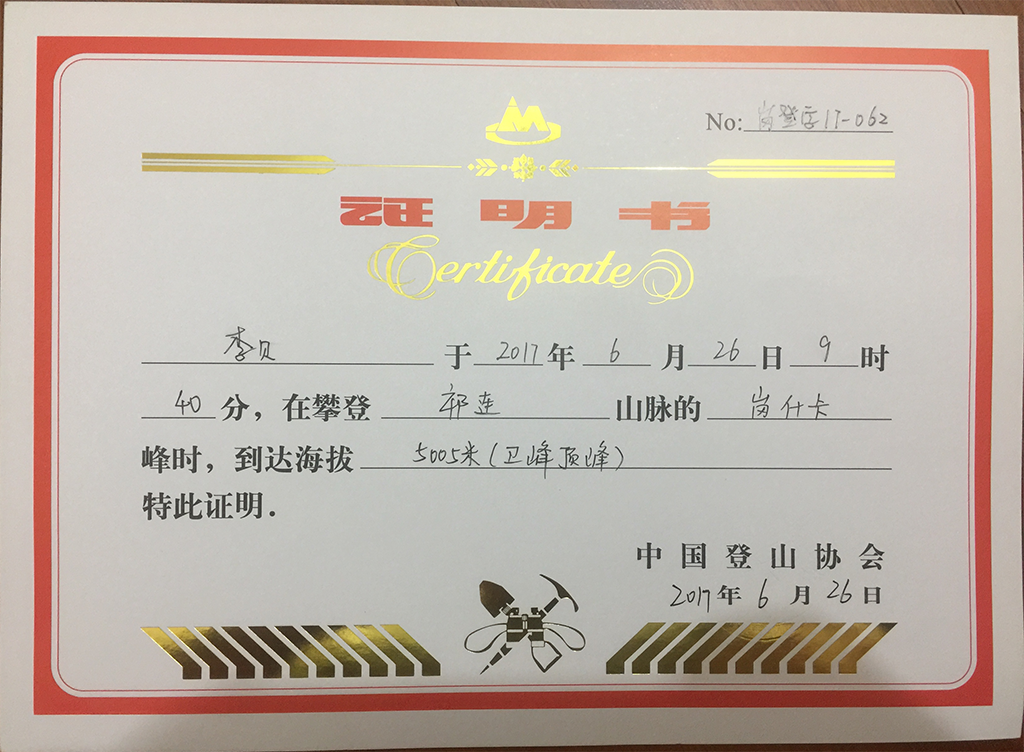 No: 岗登字17-062
证明书
Certificate
李贝 于 2017 年 6 月 26 日 9 时
40 分，在攀登 祁连 山脉的 岗什卡
峰时，到达海拔 5005米(卫峰顶峰)
特此证明.
中国登山协会
2017年 6 月 26 日